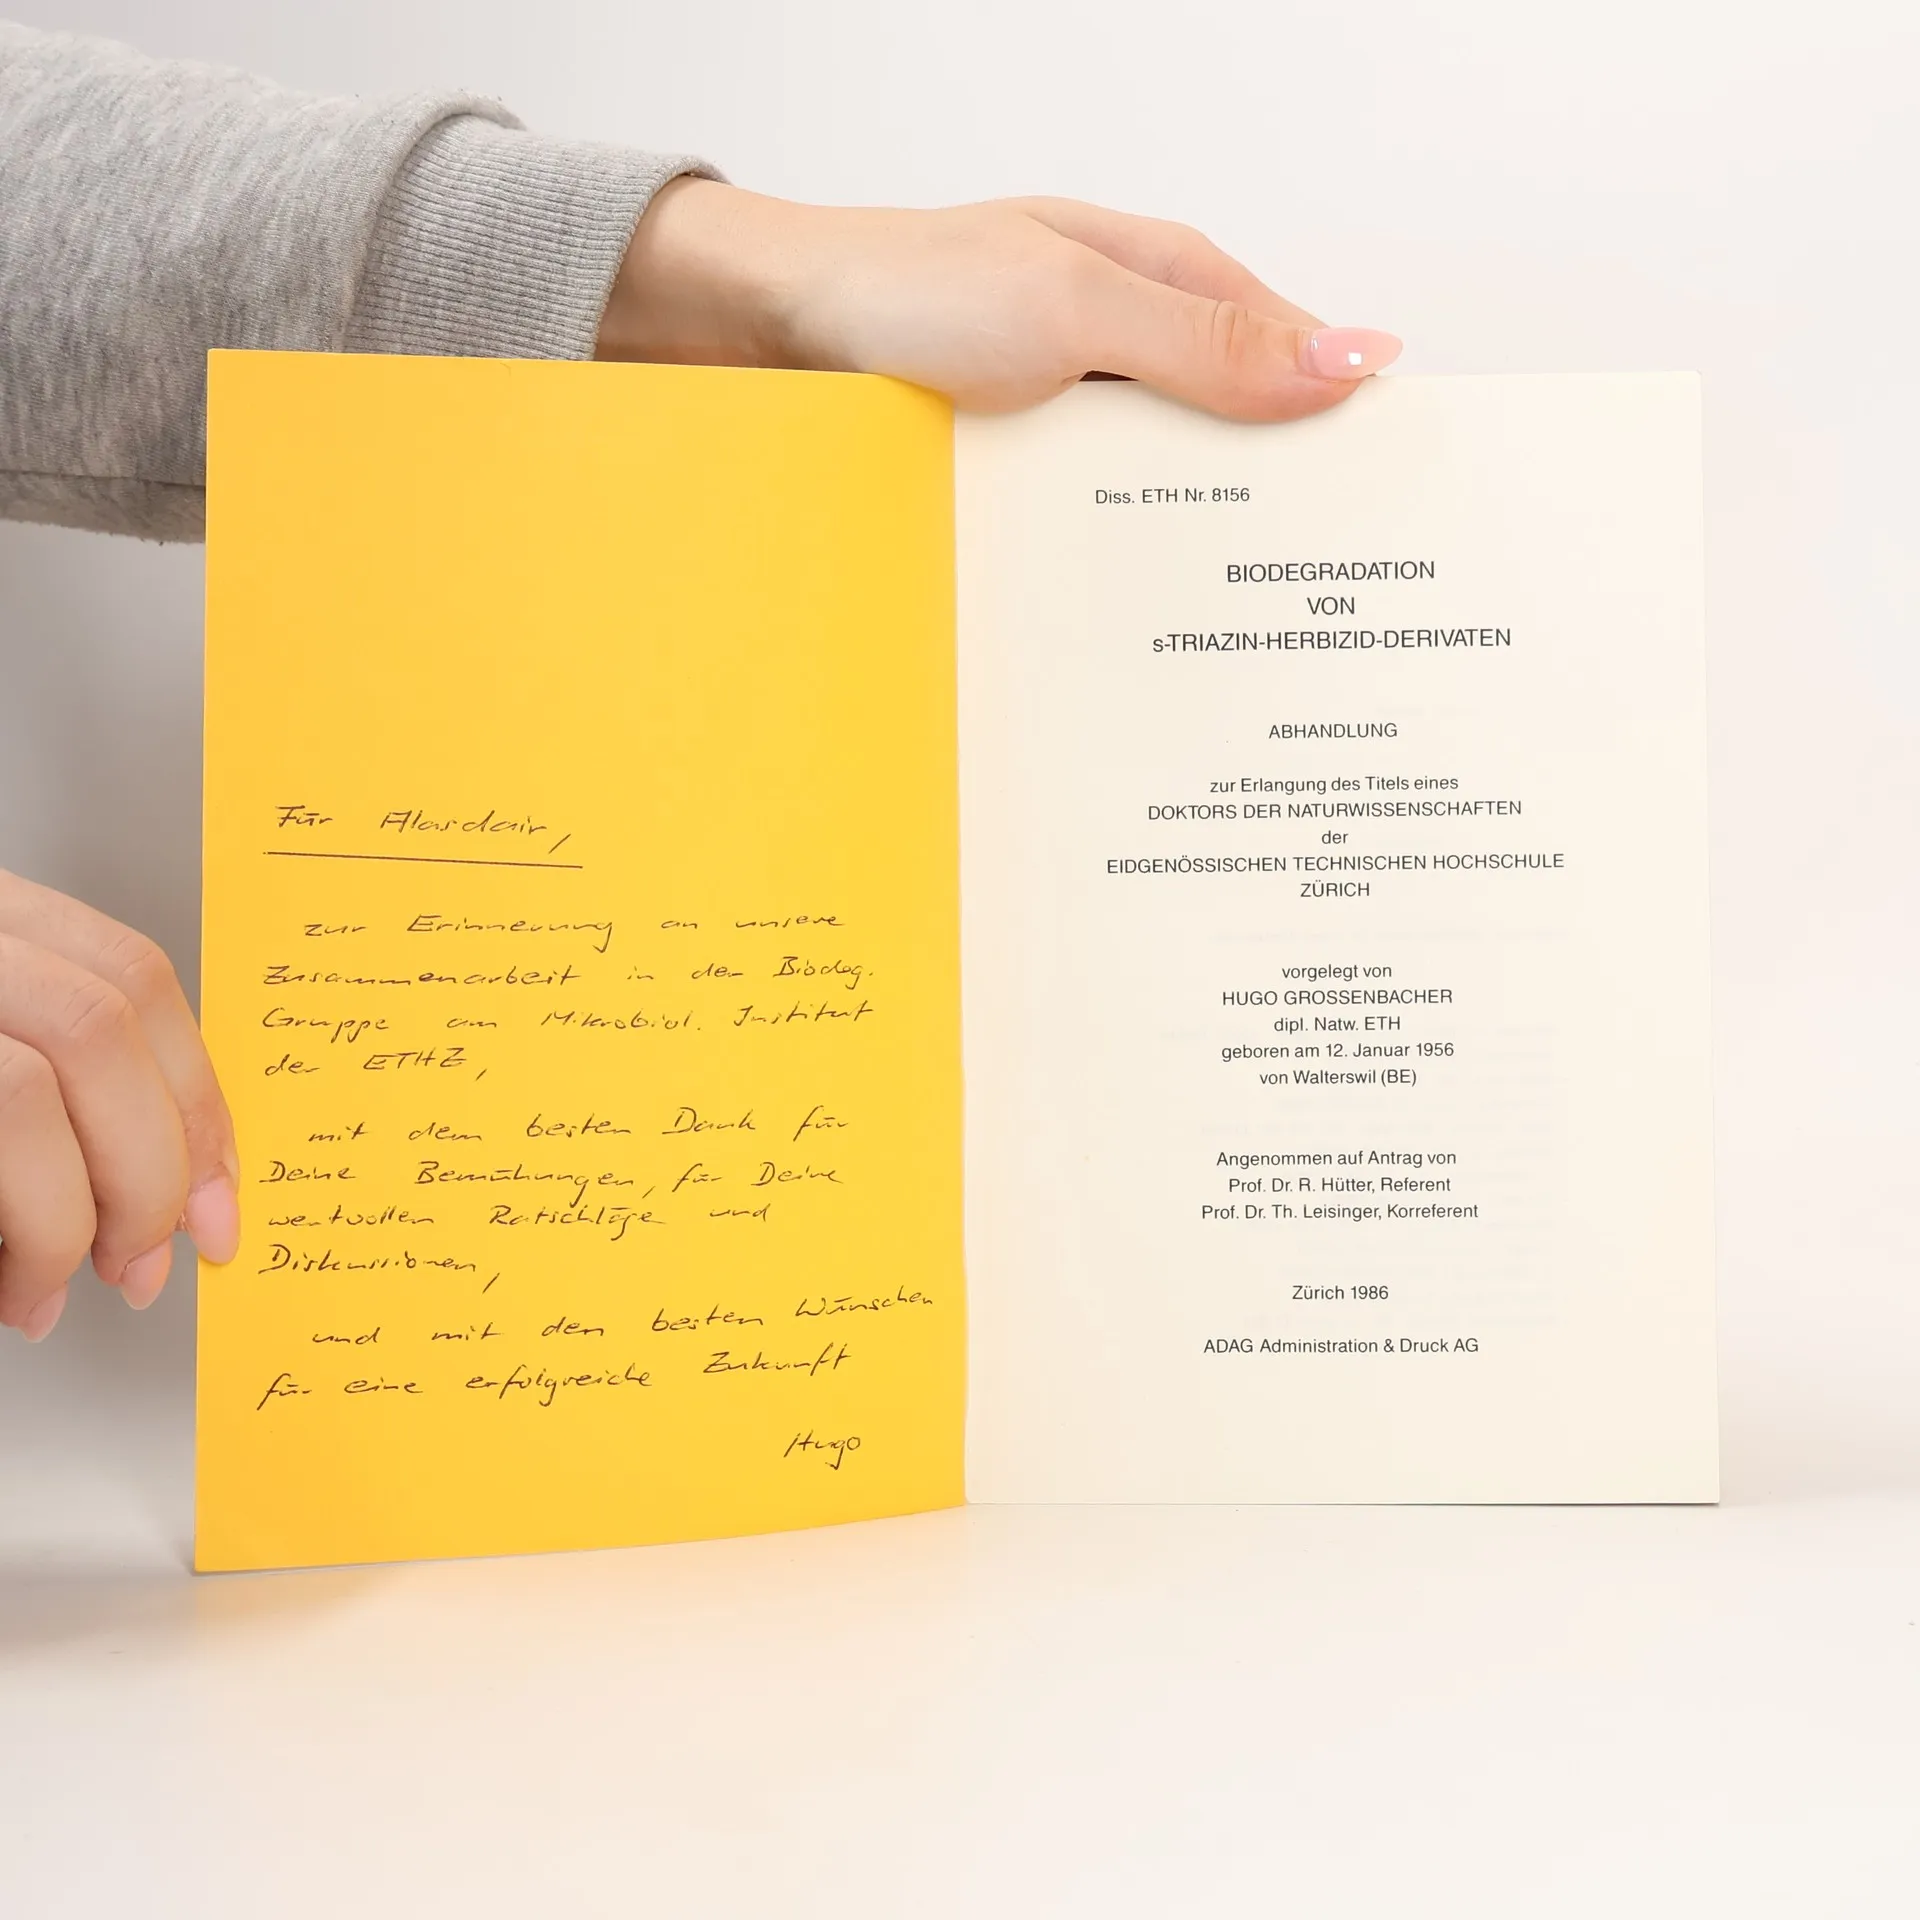 Für Alasdair,
zur Erinnerung an unsere
Zusammenarbeit in der Biodeg.
Gruppe am Mikrobiol. Institut
der ETHZ,
mit dem besten Dank für
Deine Bemühungen, für Deine
wertvollen Ratschläge und
Diskussionen,
und mit den besten Wünschen
für eine erfolgreiche Zukunft
Hugo
Diss. ETH Nr. 8156
BIODEGRADATION
VON
s-TRIAZIN-HERBIZID-DERIVATEN
ABHANDLUNG
zur Erlangung des Titels eines
DOKTORS DER NATURWISSENSCHAFTEN
der
EIDGENÖSSISCHEN TECHNISCHEN HOCHSCHULE
ZÜRICH
vorgelegt von
HUGO GROSSENBACHER
dipl. Natw. ETH
geboren am 12. Januar 1956
von Walterswil (BE)
Angenommen auf Antrag von
Prof. Dr. R. Hütter, Referent
Prof. Dr. Th. Leisinger, Korreferent
Zürich 1986
ADAG Administration & Druck AG